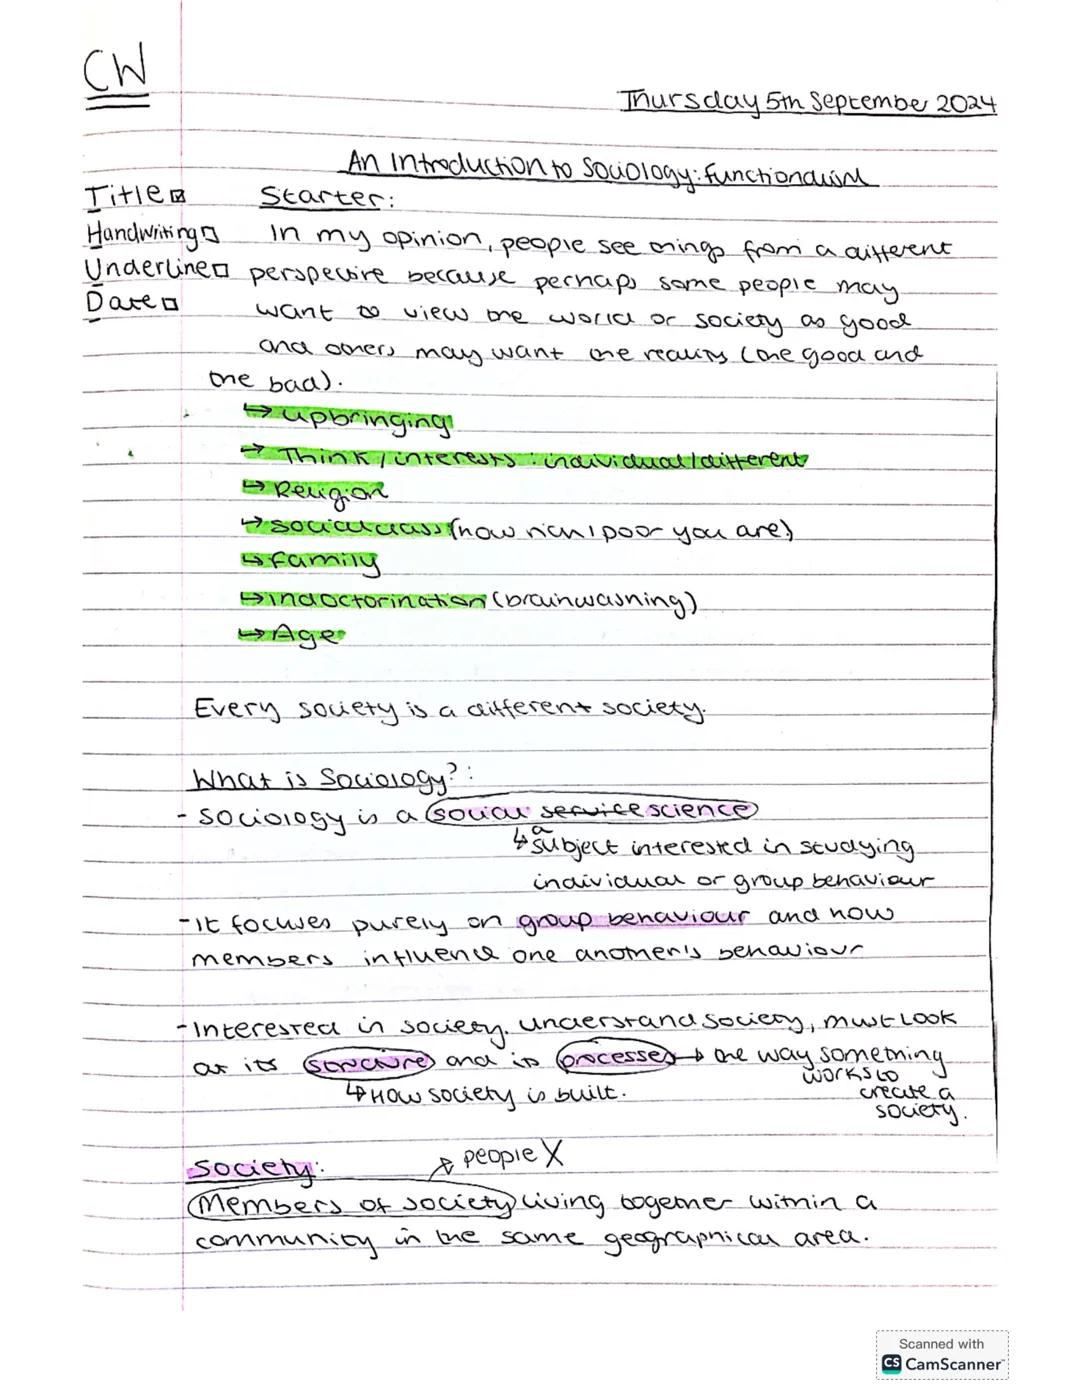 CW
Thursday 5th September 2024
An Introduction to Sociology: Functionalism
Title ☒ Starter:
Handwriting ☐ In my opinion, people see things from a different
Underline ☐ perspective because perhaps some people may
Date ☐ want to view the world or society as good
and others may want the reality (the good and
the bad).
↳ upbringing
→ Think/interests: individual/different
↳ Religion
↳ social class (how rich/poor you are)
↳ family
↳ indoctorination (brainwashing)
↳ Age
Every society is a different society.
What is Sociology?:
- Sociology is a social service science
↳ a subject interested in studying
individual or group behaviour
- It focuses purely on group behaviour and how
members influence one another's behaviour
- Interested in society. Understand society, must look
at its structure and its processes → the way something
works to
↳ How society is built.
create a
society.
Society:
↗ people X
Members of society living together within a
community in the same geographical area.
Scanned with
CS CamScanner